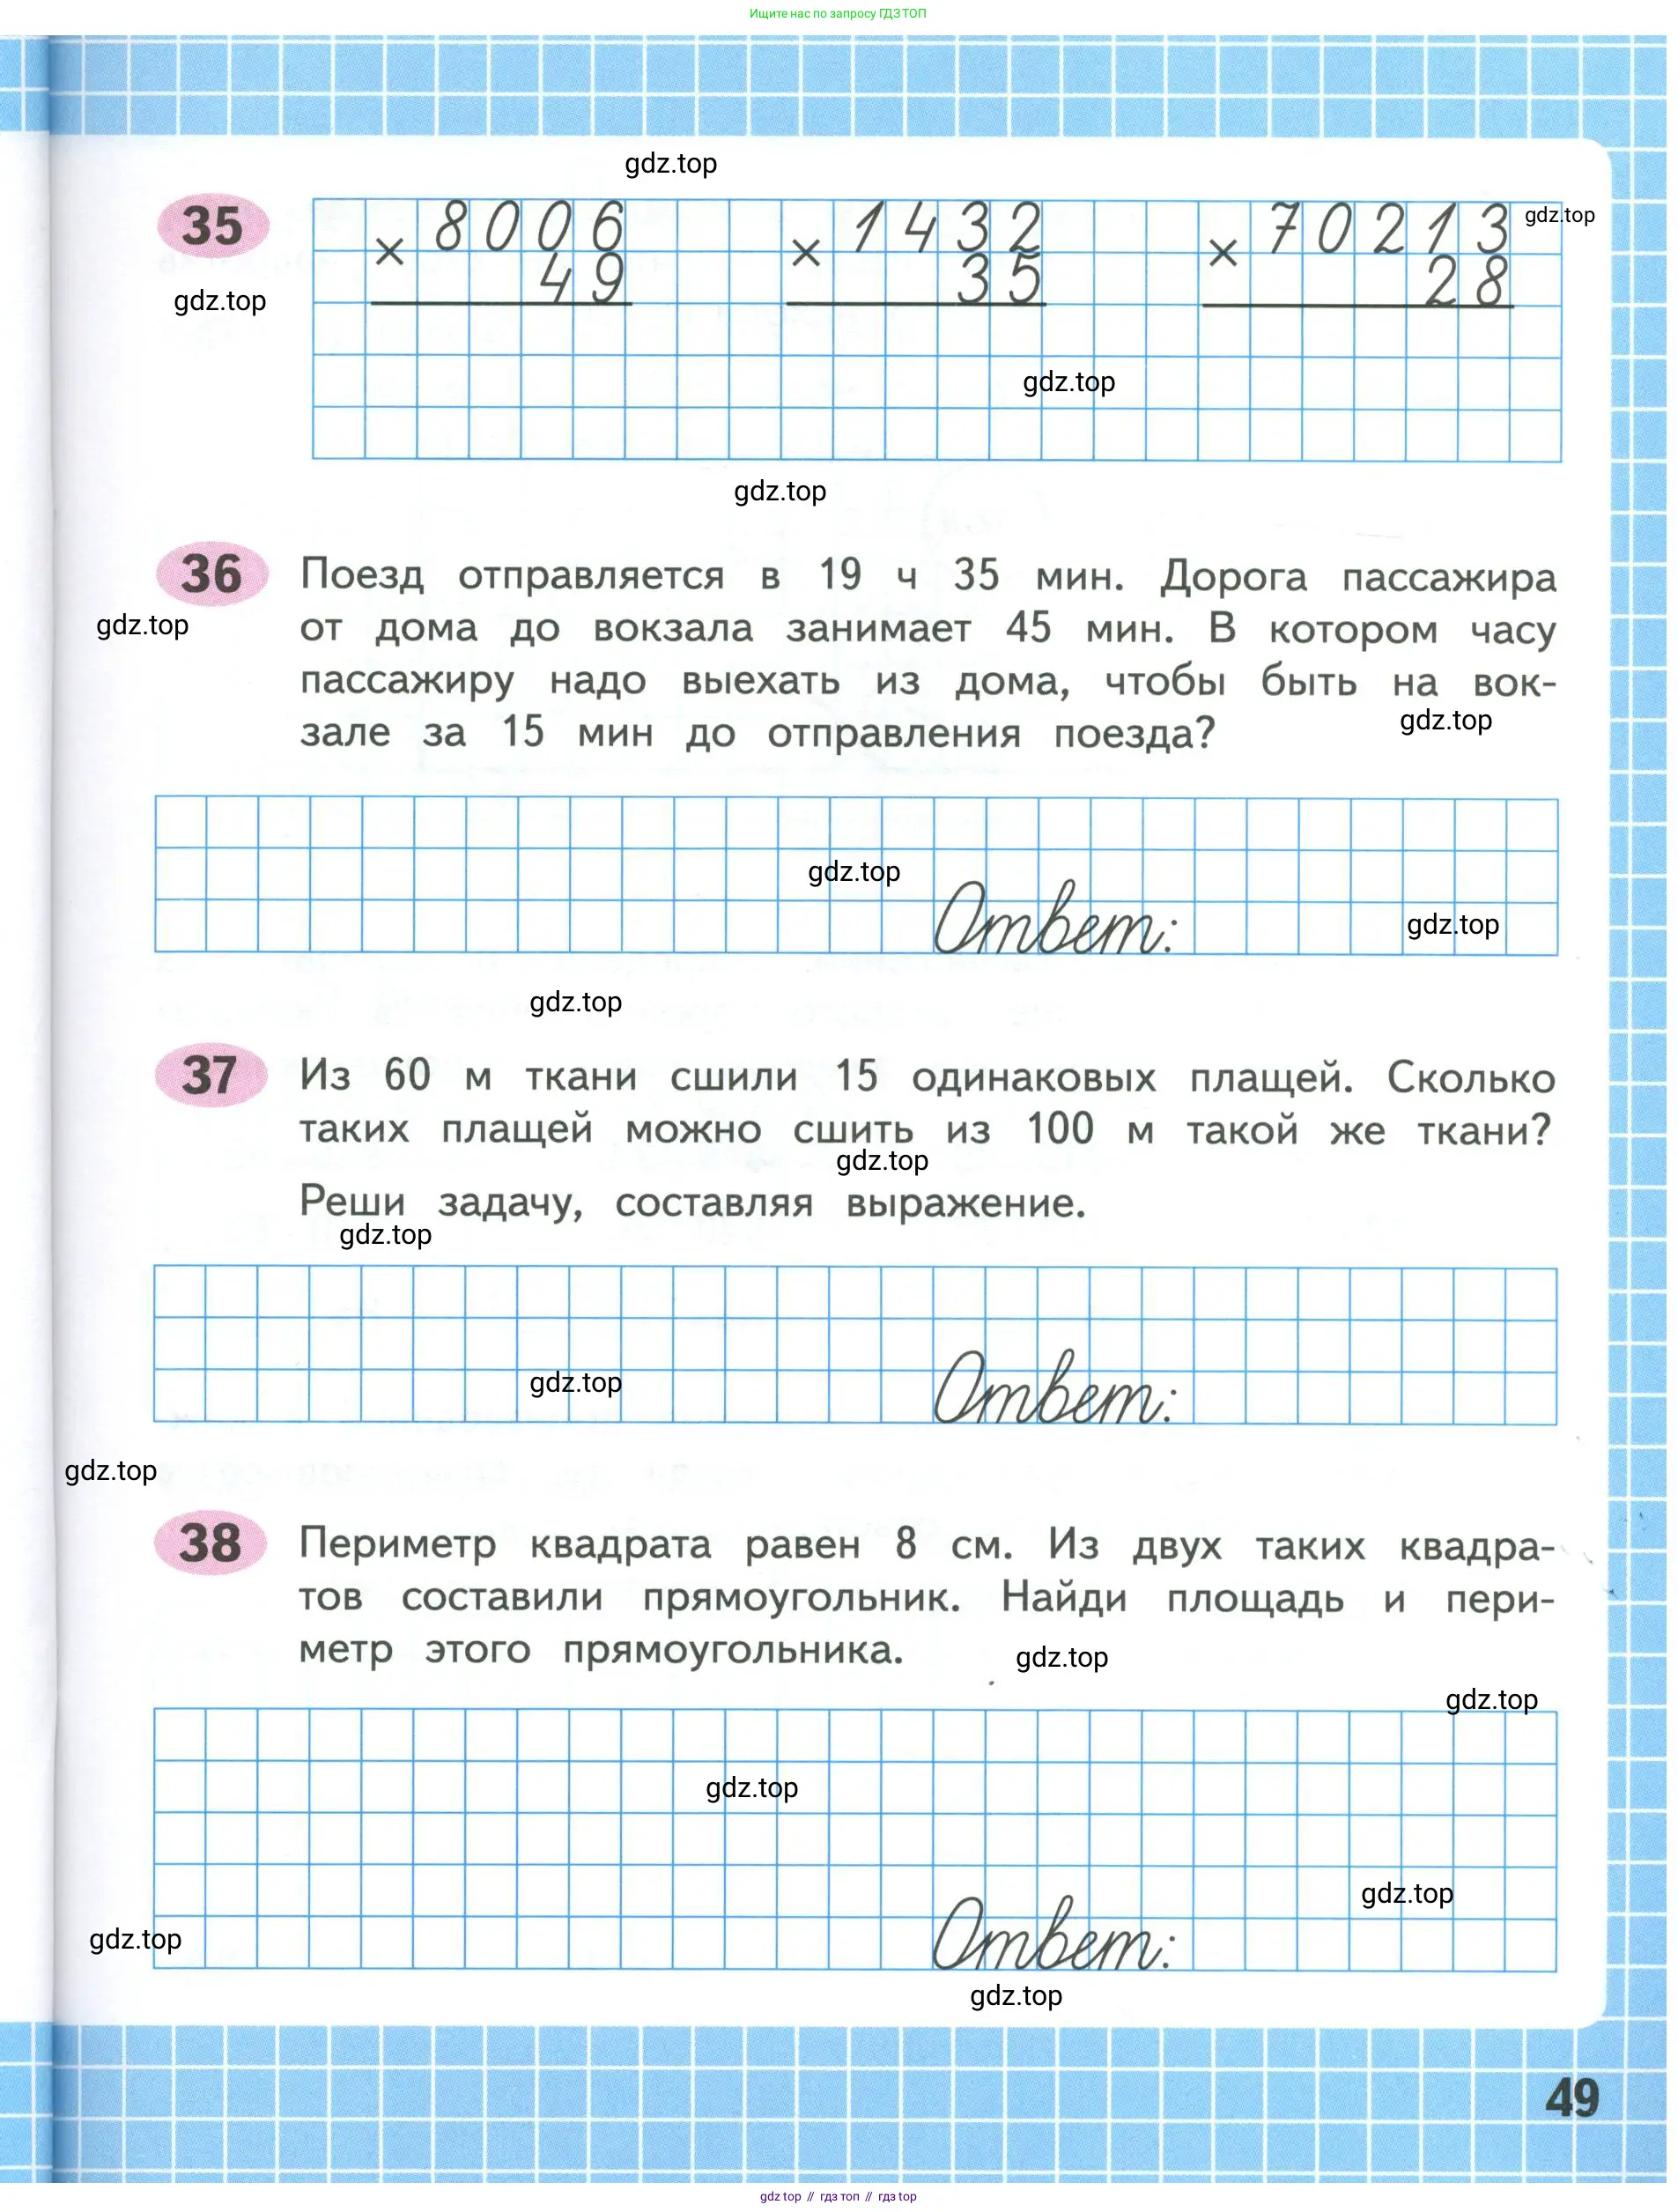 Ищите нас по запросу ГДЗ ТОП
gdz.top
35
× 8006
49
× 1432
35
× 70213
28
gdz.top
gdz.top
gdz.top
gdz.top
36
Поезд отправляется в 19 ч 35 мин. Дорога пассажира
gdz.top
от дома до вокзала занимает 45 мин. В котором часу
пассажиру надо выехать из дома, чтобы быть на вок-
зале за 15 мин до отправления поезда?
gdz.top
gdz.top
Ответ:
gdz.top
gdz.top
37
Из 60 м ткани сшили 15 одинаковых плащей. Сколько
таких плащей можно сшить из 100 м такой же ткани?
gdz.top
Реши задачу, составляя выражение.
gdz.top
gdz.top
Ответ:
gdz.top
38
Периметр квадрата равен 8 см. Из двух таких квадра-
тов составили прямоугольник. Найди площадь и пери-
метр этого прямоугольника.
gdz.top
gdz.top
gdz.top
gdz.top
gdz.top
Ответ:
gdz.top
49
gdz top // гдз топ // гдз top